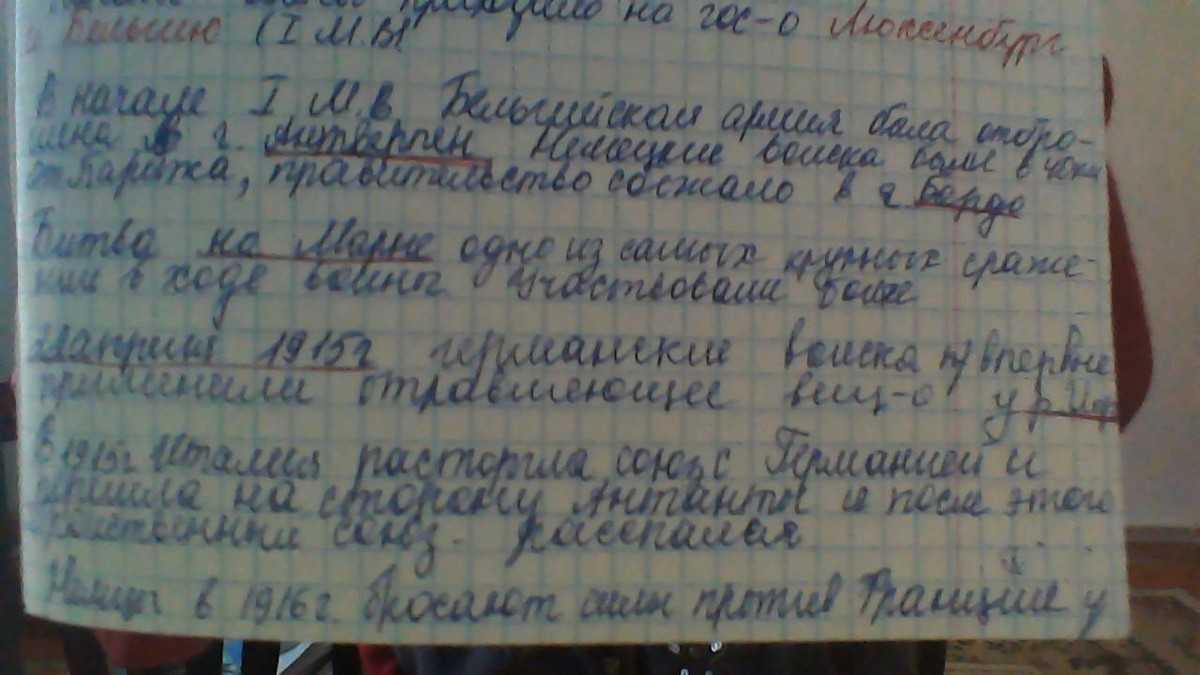 на гос-о Люксенбург
Бельгию (I М.В)
В начале I М.В. Бельгийская армия бала отбро-
шена в г. Антверпен Немецкие войска были в
от Парижа, правительство сбежало в г Бордо
Битва на Марне одно из самых крупных сраже-
нии в ходе войны. Участвовали более
22 апреля 1915г германские войска впервые
применили отравляющее вещ-о у р. Ипр
В 1915г Италия расторгла союз с Германией и
пришла на сторону Антанты и после этого
Тройственный союз. распался
Немцы в 1916 г. бросают силы против Франции у